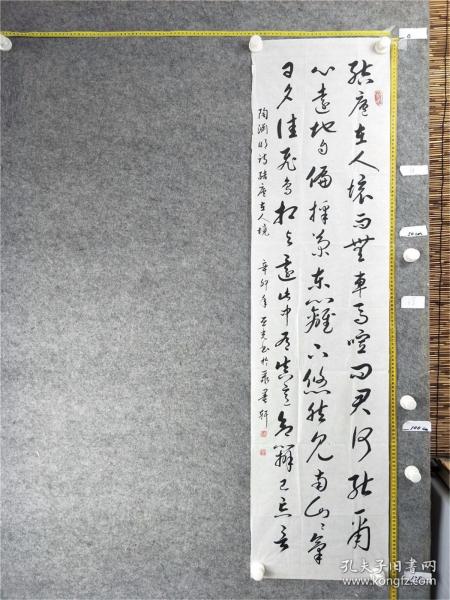 結廬在人境而無車馬喧問君何能爾
心遠地自偏採菊東籬下悠然見南山々氣
日夕佳飛鳥相与還此中有真意欲辯已忘言
陶渊明诗結廬在人境 辛卯年 书於 墨轩
50cm
100cm
孔夫子旧书网
www.kongfz.com